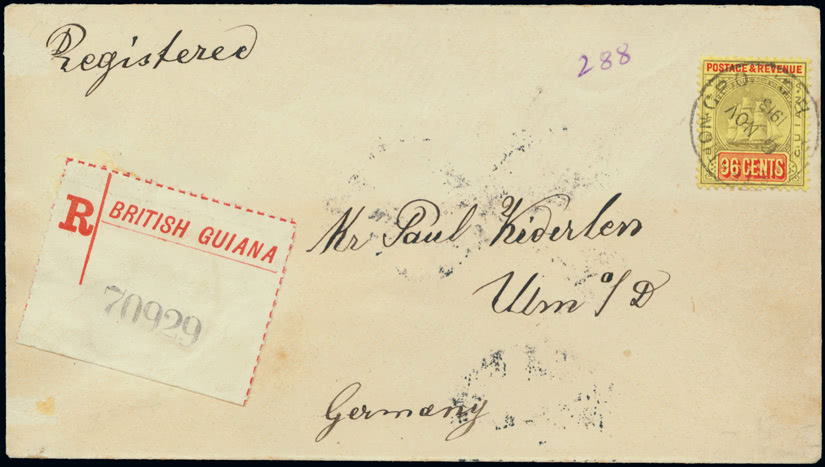 Registered
288
POSTAGE & REVENUE
96 CENTS
G.P.O.
NOV
1913
R
BRITISH GUIANA
70929
Mr Paul Kiderlen
Ulm o/D
Germany